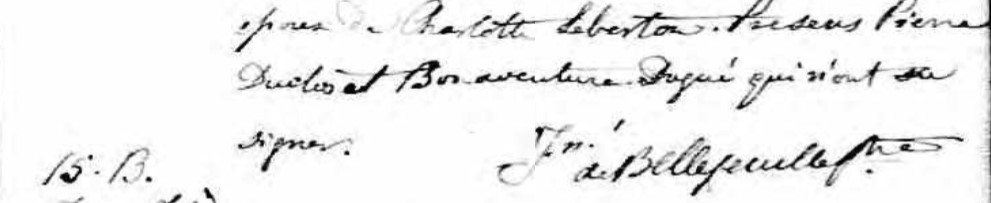 epoux de Charlotte Leberton. Presens Pierre
Duclos et Bonaventure Dugué qui n'ont su
signer.
Jn.
15. B. de Bellefeuille ptre